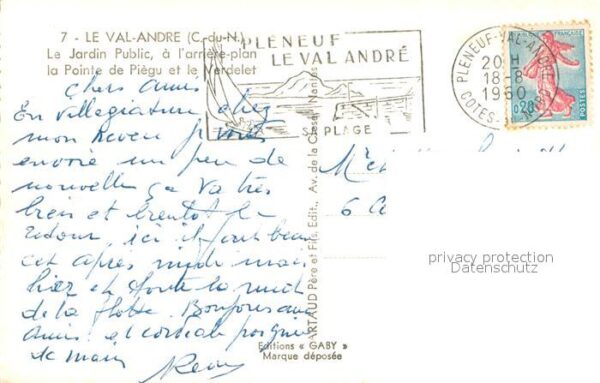 7 - LE VAL-ANDRE (C.-du-N.)
Le Jardin Public, à l'arrière-plan
la Pointe de Piégu et le Verdelet
PLENEUF
LE VAL ANDRÉ
SA PLAGE
PLENEUF-VAL-ANDRÉ
20 H
18-8
1960
COTES-DU-NORD
FRANÇAISE
0,20
POSTES
Chers amis
En villégiature chez
mon neveu je vous
envoie un peu de
nouvelle ça va très
bien et bientôt le
retour, ici il fait beau
cet après midi mais
hier et toute la nuit
de la flotte. Bonjour aux
amis et cordiale poignée
de main
6
ARTAUD Père et Fils, Edit., Av. de la Close, Nantes
Editions « GABY »
Marque déposée
privacy protection
Datenschutz